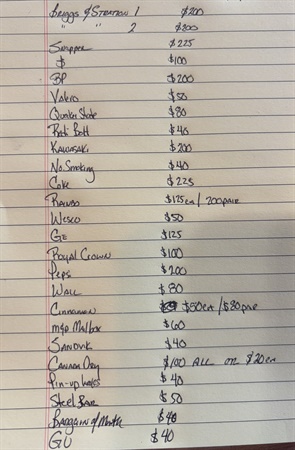 Briggs & Stratton 1 $200
" " 2 $200
Snapper $225
$ $100
BP $200
Valvo $50
Quaker State $80
Redi Bolt $40
Kawasaki $200
No Smoking $40
Coke $225
$125 ea / 200 pair
Wesco $50
GE $125
Royal Crown $100
Peps $200
Wall $80
Cinnamon $50 ea / $80 pair
mgo Mailbox $60
Sandvik $40
Canada Dry $100 ALL OR $20 ea
Pin-up $40
Steel Bar $50
Bargain of Month $40
GU $40